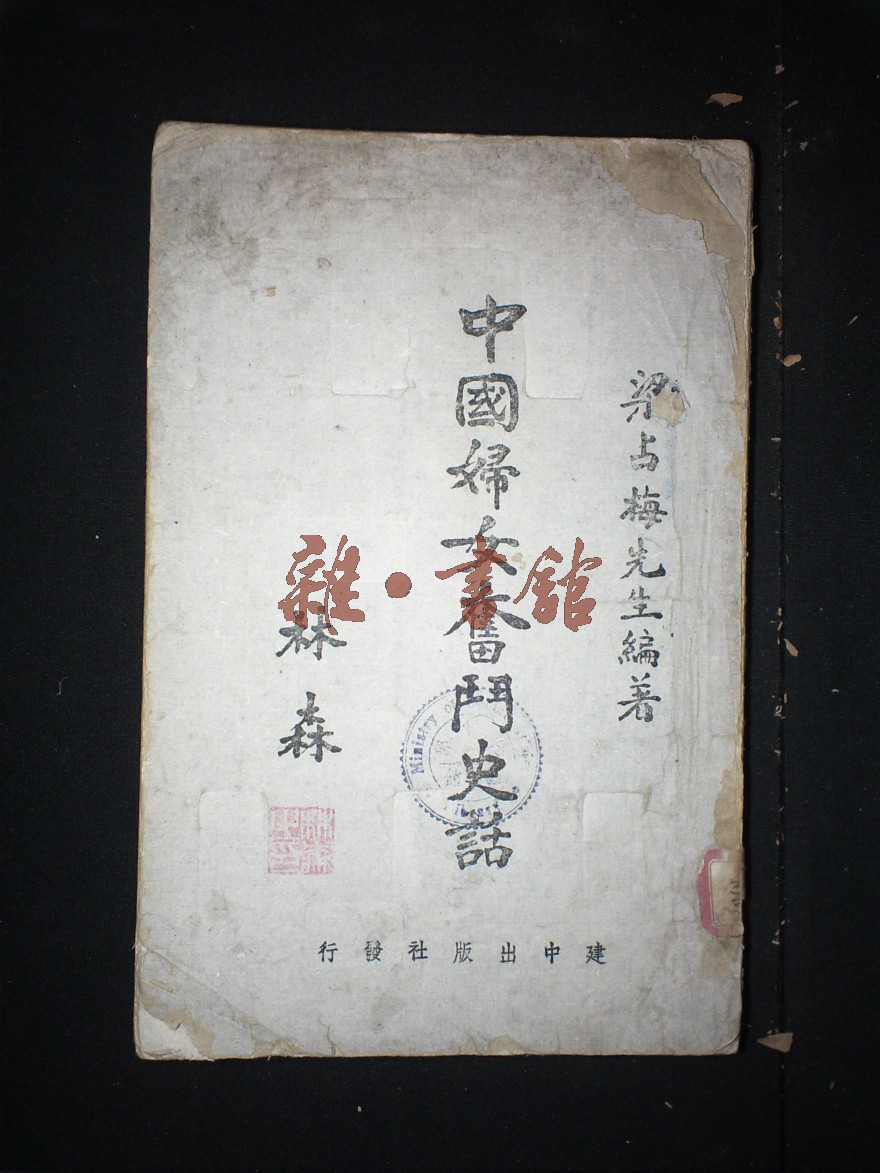 梁占梅先生編著
中國婦女奮鬥史話
林森
建中出版社發行
雜·書館
Ministry